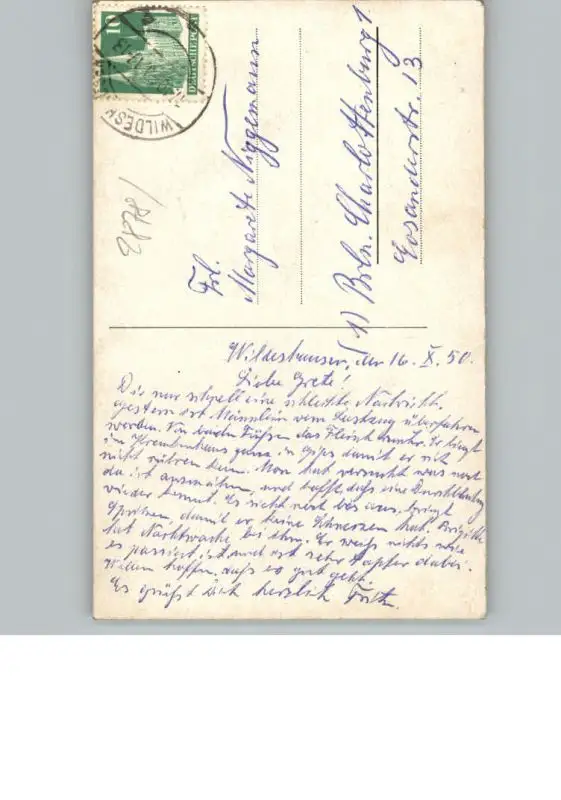 10
DEUTSCHE POST
WILDESH
2878/
Frl.
Margarete Niggemann
1) Brln. Charlottenburg 1
Eosanderstr. 13
Wildeshausen, den 16. X. 50.
Liebe Grete!
Dir nur schnell eine schlechte Nachricht.
gestern ist Männlein vom Lastzug überfahren
worden. Von beiden Füßen das Fleisch runter. Er liegt
im Krankenhaus ganz in Gips damit er sich
nicht rühren kann. Man hat versucht was noch
da ist anzunähen, und hofft, daß eine Durchblutung
wieder kommt. Es sieht noch bös aus, kriegt
Spritzen, damit er keine Schmerzen hat. Brigitte
hat Nachtwache bei ihm. Er weiß nichts wie
es passiert ist und ist sehr tapfer dabei.
Wollen hoffen, daß es gut geht.
Es grüßt Dich herzlich Fritz.